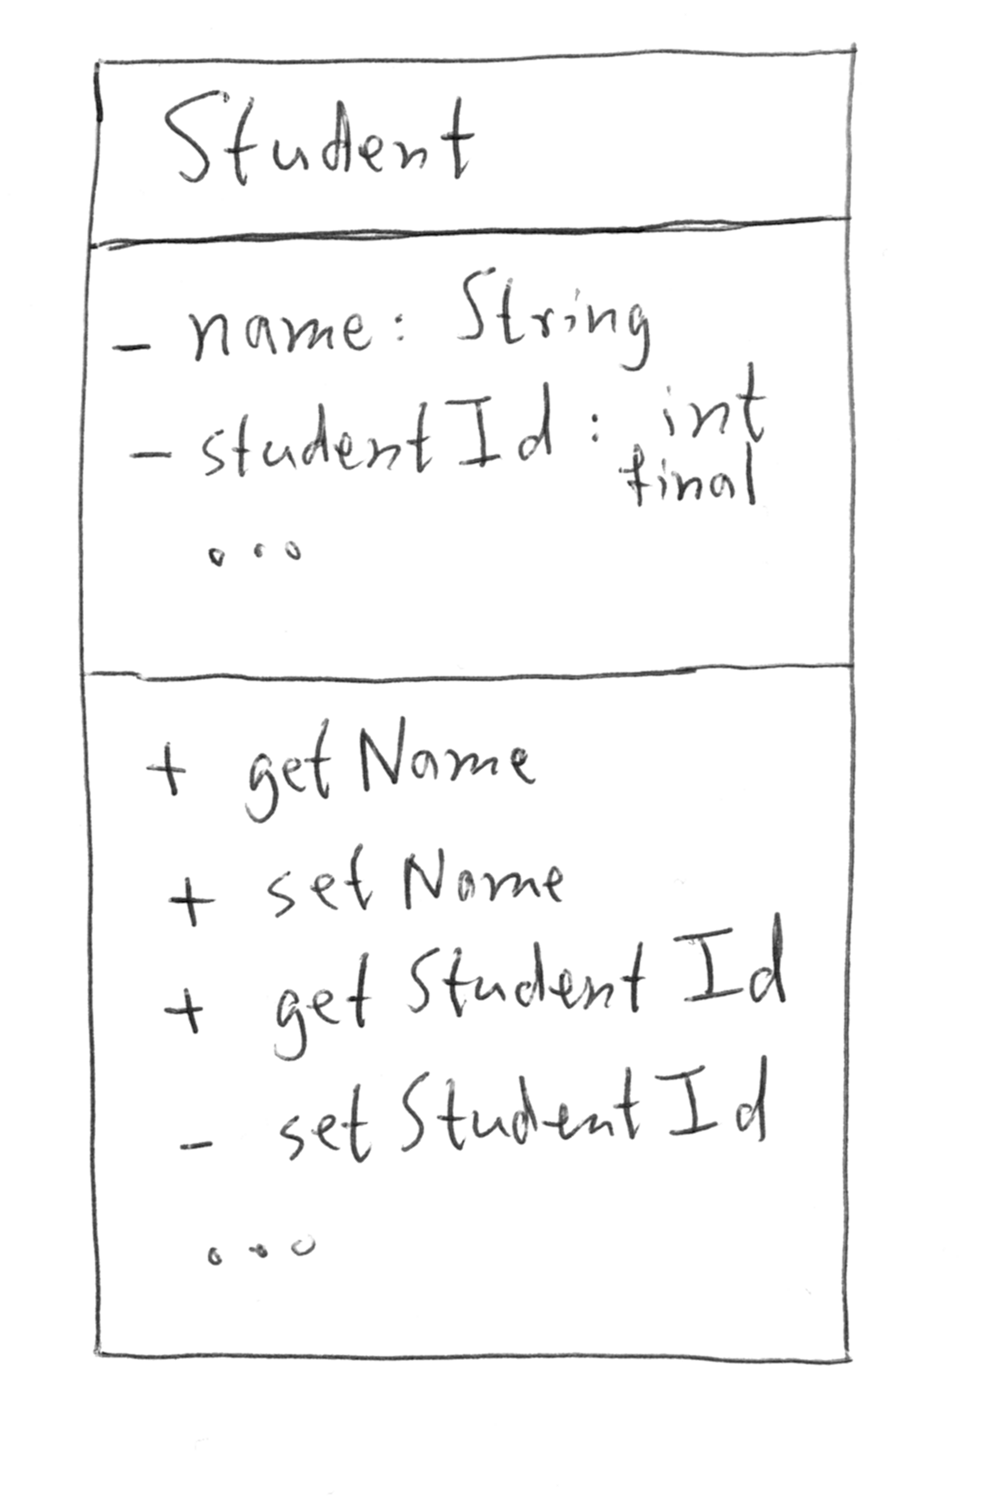 Student
- name: String
- studentId: int
final
...
+ getName
+ setName
+ getStudentId
- setStudentId
...